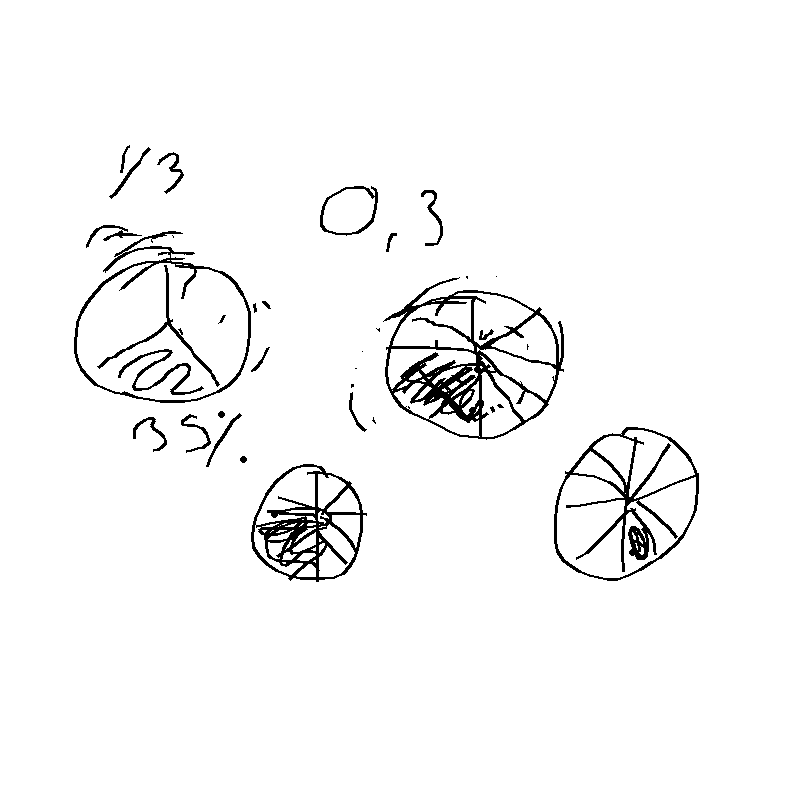 1/3
0,3
35%